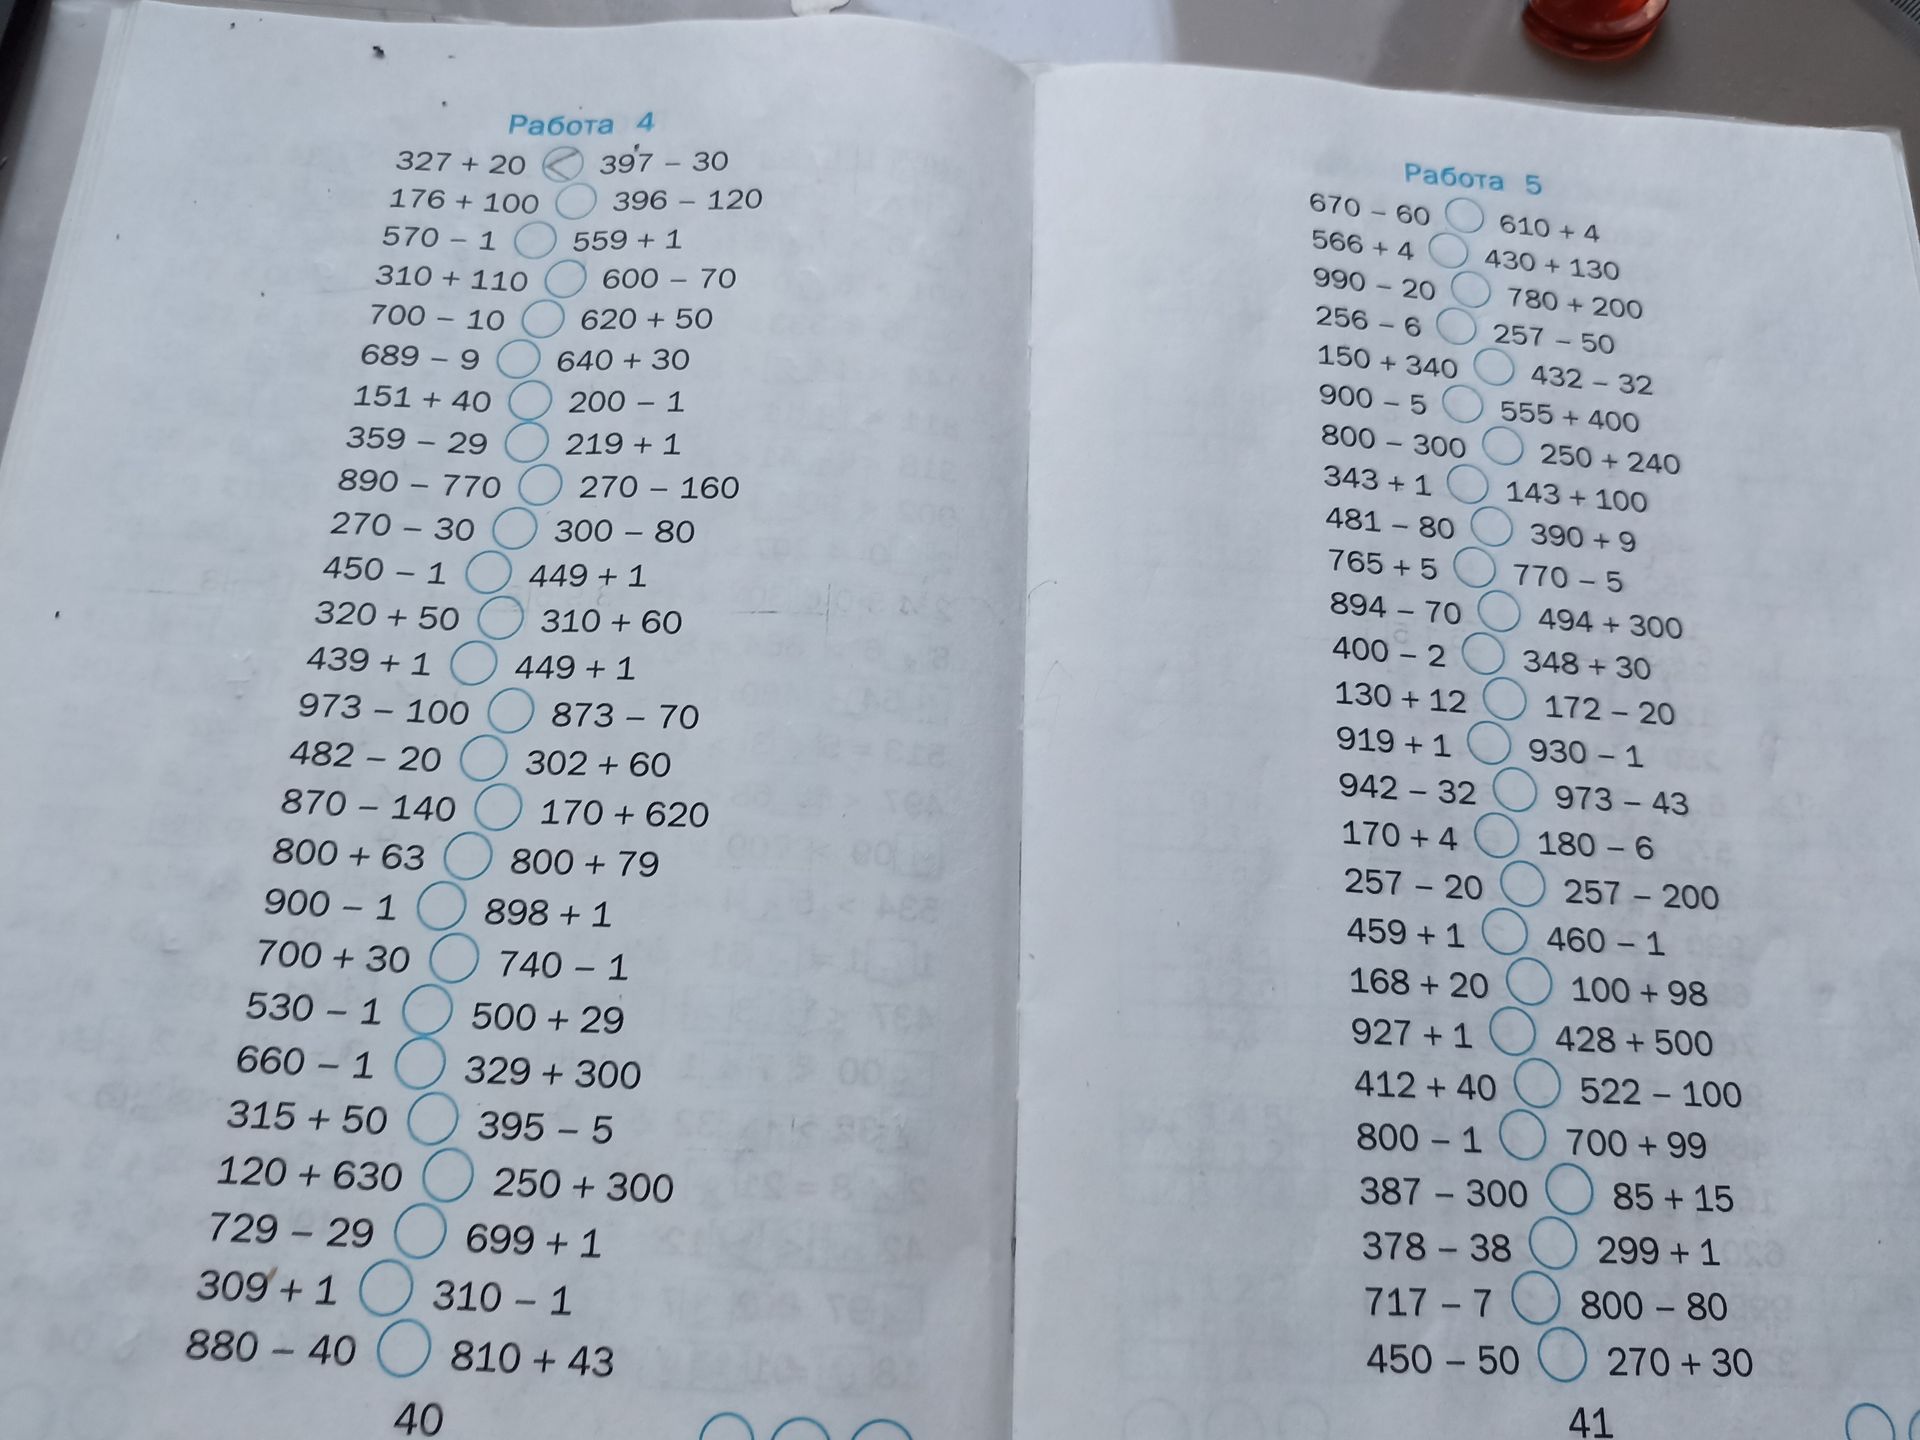 Работа 4
327 + 20 < 397 – 30
176 + 100 396 – 120
570 – 1 559 + 1
310 + 110 600 – 70
700 – 10 620 + 50
689 – 9 640 + 30
151 + 40 200 – 1
359 – 29 219 + 1
890 – 770 270 – 160
270 – 30 300 – 80
450 – 1 449 + 1
320 + 50 310 + 60
439 + 1 449 + 1
973 – 100 873 – 70
482 – 20 302 + 60
870 – 140 170 + 620
800 + 63 800 + 79
900 – 1 898 + 1
700 + 30 740 – 1
530 – 1 500 + 29
660 – 1 329 + 300
315 + 50 395 – 5
120 + 630 250 + 300
729 – 29 699 + 1
309 + 1 310 – 1
880 – 40 810 + 43
40
Работа 5
670 – 60 610 + 4
566 + 4 430 + 130
990 – 20 780 + 200
256 – 6 257 – 50
150 + 340 432 – 32
900 – 5 555 + 400
800 – 300 250 + 240
343 + 1 143 + 100
481 – 80 390 + 9
765 + 5 770 – 5
894 – 70 494 + 300
400 – 2 348 + 30
130 + 12 172 – 20
919 + 1 930 – 1
942 – 32 973 – 43
170 + 4 180 – 6
257 – 20 257 – 200
459 + 1 460 – 1
168 + 20 100 + 98
927 + 1 428 + 500
412 + 40 522 – 100
800 – 1 700 + 99
387 – 300 85 + 15
378 – 38 299 + 1
717 – 7 800 – 80
450 – 50 270 + 30
41